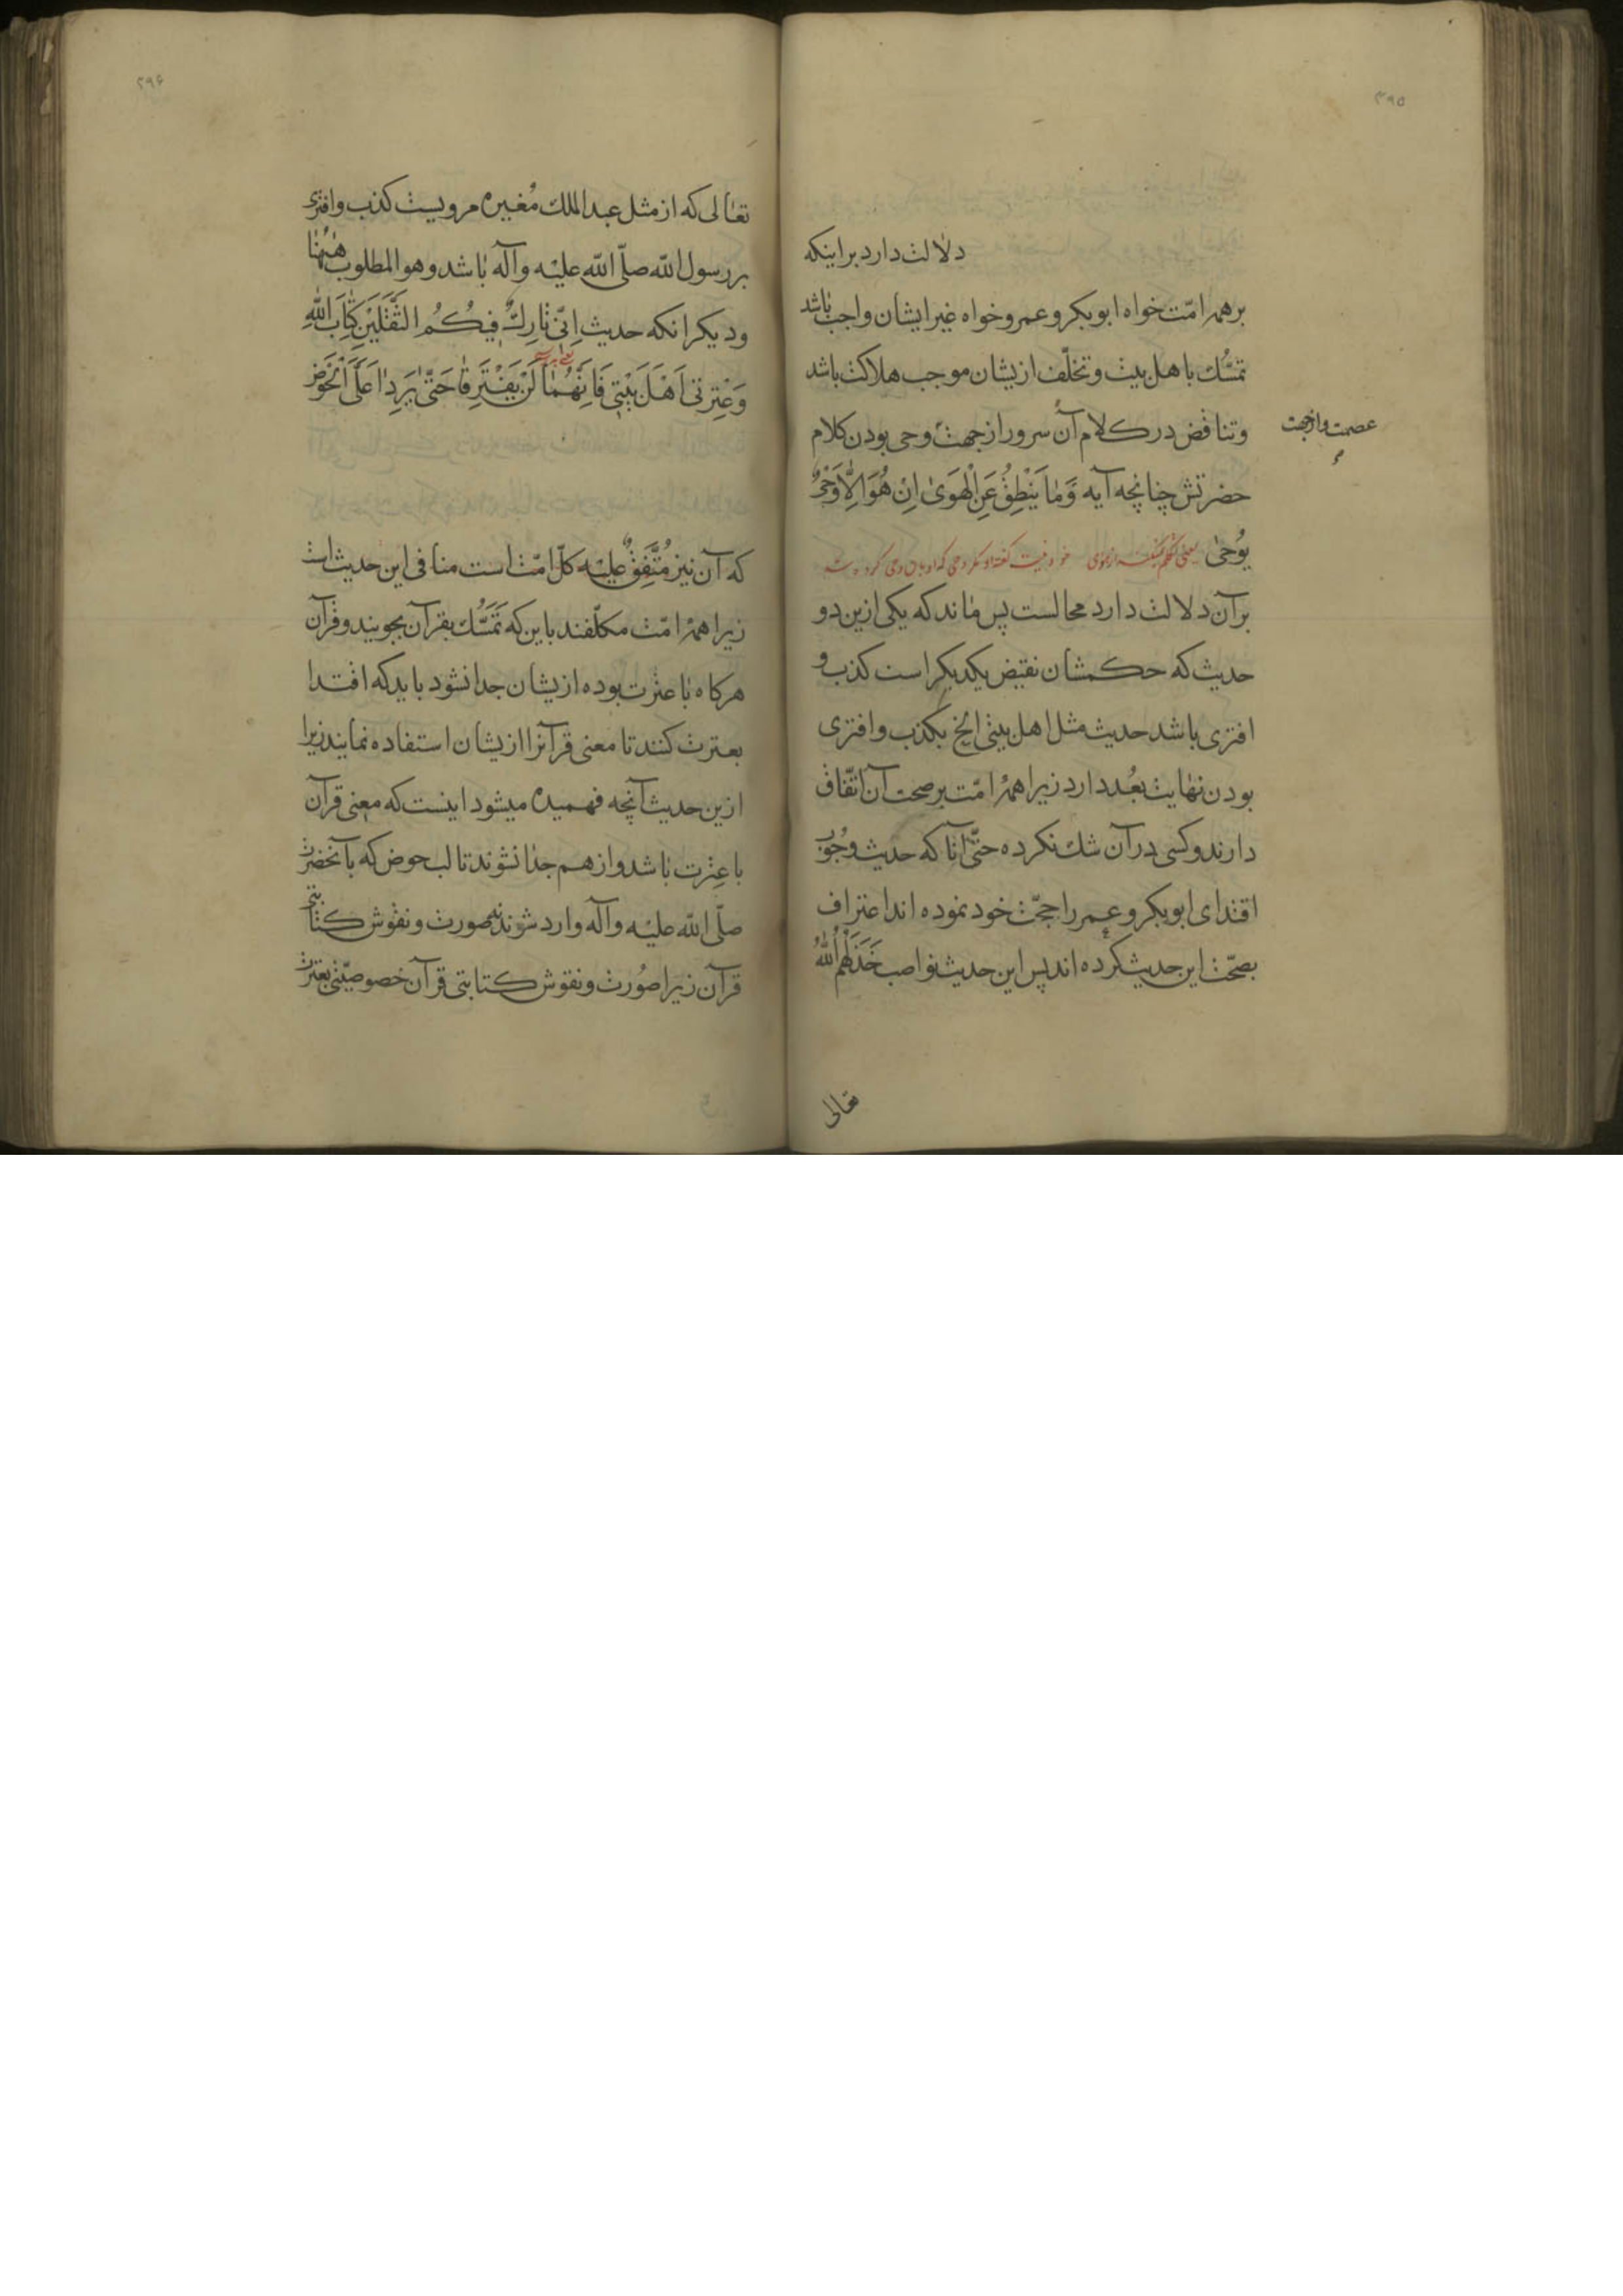 ۲۹۵
دلالت دارد بر اینکه
بر همهٔ امّت خواه ابوبکر و عمر و خواه غیر ایشان واجب باشد
تمسُّک باهل بیت و تخلّف ازیشان موجب هلاکت باشد
و تناقض در کلام آن سرور از جهت وحی بودن کلام
عصمت و از جهت
حضرتش چنانچه آیه وَمَا یَنْطِقُ عَنِ الْهَوَیٰ اِنْ هُوَ اِلَّا وَحْیٌ
یُوحیٰ یعنی خود نیست کفته او مکر وحی که
بر آن دلالت دارد محالست پس ماند که یکی ازین دو
حدیث که حکمشان نقیض یکدیکر است کذب و
افتری باشد حدیث مثل اهل بیتی الخ بکذب و افتری
بودن نهایت بُعد دارد زیرا همهٔ امّت بر صحت آن اتّفاق
دارند و کسی در آن شک نکرده حتّی آنا که حدیث وجُوب
اقتدای ابوبکر و عمر را حجّت خود نموده اند اعتراف
بصحّت این حدیث کرده اند پس این حدیث نواصب خَذَلَهُمُ اللّٰهُ
تعالی
۲۹۶
تعالی که از مثل عبدالملک مُغیره مرویست کذب و افتری
بر رسول اللّه صلّی اللّه علیه وآله باشد و هو المطلوب هٰهُنا
و دیکر انکه حدیث اِنّی تارِکٌ فیکُمُ الثَّقَلَیْنِ کِتابَ اللّٰهِ
وَعِتْرَتی اَهْلَ بَیْتی فَاِنَّهُمٰا لَنْ یَفْتَرِقا حَتّیٰ یَرِدٰا عَلَیَّ الْحَوْضَ
که آن نیز مُتَّفِقٌ علیه کلّ امّت است منافی این حدیث است
زیرا همهٔ امّت مکلّفند باین که تَمَسُّک بقرآن بجویند و قرآن
هرکاه با عترت بوده ازیشان جدا نشود باید که اقتدا
بعترت کنند تا معنی قرآنرا ازیشان استفاده نمایند زیرا
ازین حدیث آنچه فهمیده میشود اینست که معنی قرآن
با عِترت باشد و از هم جدا نشوند تا لب حوض که بآنحضرت
صلّی اللّه علیه وآله وارد شوند نه صورت و نقوش کتابتی
قرآن زیرا صُورت و نقوش کتابتی قرآن خصوصیّتی بعترت